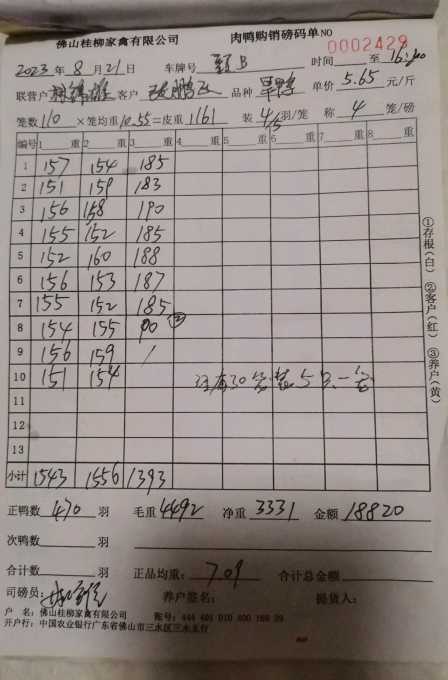 佛山桂柳家禽有限公司 肉鸭购销磅码单 NO 0002429
2023 年 8 月 21 日 车牌号 时间 至 16:
联营户 客户 品种 单价 5.65 元/斤
笼数 110 ×笼均重 10.55 =皮重 1161 装 4/5 羽/笼 称 4 笼/磅
编号 1 重 2 重 3 重 4 重 5 重 6 重 7 重 8 重
1 157 154 185
2 151 159 183
3 156 158 190
4 155 152 185
5 152 160 188
6 156 153 187
7 155 152 185
8 154 155 90 ②
9 156 159 /
10 151 154 注有30笼装5只一笼
11
12
13
小计 1543 1556 1393
正鸭数 470 羽 毛重 4492 净重 3331 金额 18820
次鸭数 羽
合计数 羽 正品均重: 7.09 合计总金额
司磅员: 养户签名: 提货人:
户 名: 佛山桂柳家禽有限公司 账号:
开户行: 中国农业银行广东省佛山市三水区三水支行
①存根(白) ②客户(红) ③养户(黄)